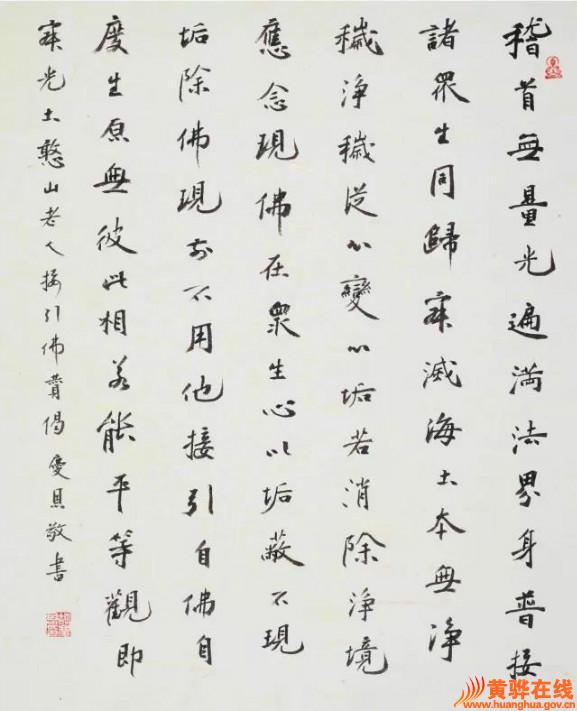 稽首無量光遍满法界身普接
諸眾生同歸寂滅海土本無淨
穢淨穢從心變心垢若消除淨境
應念現佛在眾生心以垢蔽不現
垢除佛現前不用他接引自佛自
度生原無彼此相若能平等觀即
寂光土憨山老人接引佛賛偈 愛具敬書
黄骅在线
www.huanghua.gov.cn